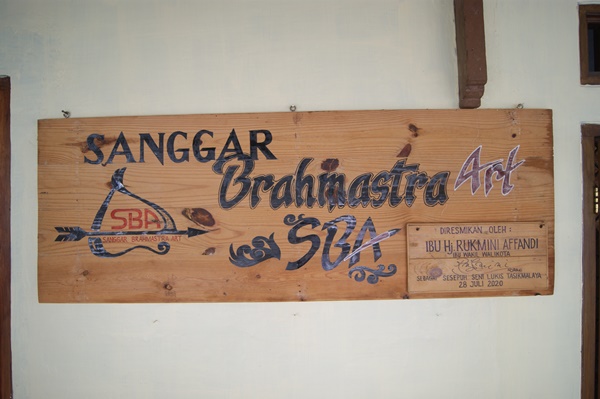 SANGGAR
Brahmastra Art
SBA
SBA
SANGGAR BRAHMASTRA ART
DIRESMIKAN OLEH :
IBU Hj. RUKMINI AFFANDI
IBU WAKIL WALIKOTA
SEBAGAI SESEPUH SENI LUKIS TASIKMALAYA
28 JULI 2020